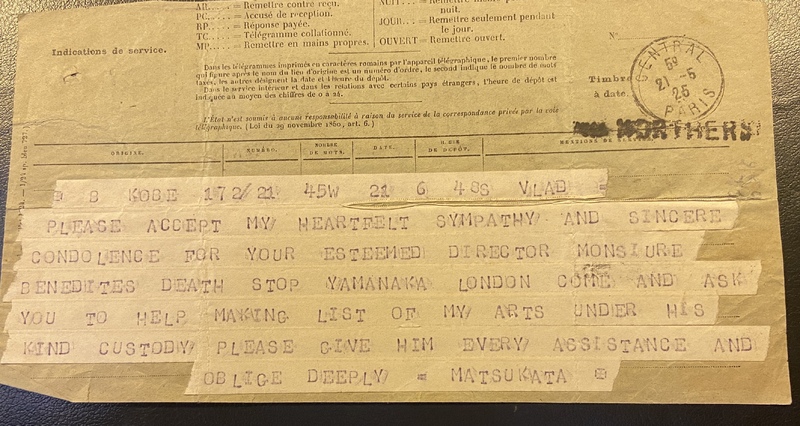 AR.... = Remettre contre reçu.
PC.... = Accusé de réception.
RP.... = Réponse payée.
TC.... = Télégramme collationné.
MP.... = Remettre en mains propres.
nuit.
JOUR.... = Remettre seulement pendant
le jour.
OUVERT. = Remettre ouvert.
Indications de service.
Dans les télégrammes imprimés en caractères romains par l'appareil télégraphique, le premier nombre
qui figure après le nom du lieu d'origine est un numéro d'ordre, le second indique le nombre de mots
taxés, les autres désignent la date et l'heure du dépôt.
Dans le service intérieur et dans les relations avec certains pays étrangers, l'heure de dépôt est
indiquée au moyen des chiffres de 0 à 24.
L'État n'est soumis à aucune responsabilité à raison du service de la correspondance privée par la voie
télégraphique. (Loi du 29 novembre 1850, art. 6.)
N°
Timbre
à date.
CENTRAL
21-5
25
PARIS
NORTHERN
ORIGINE.
NUMÉRO.
NOMBRE
DE MOTS.
DATE.
HEURE
DE DÉPÔT.
MENTIONS DE SERVICE.
8 KOBE 172/21 45W 21 6 48S VLAD =
PLEASE ACCEPT MY HEARTFELT SYMPATHY AND SINCERE
CONDOLENCE FOR YOUR ESTEEMED DIRECTOR MONSIURE
BENEDITES DEATH STOP YAMANAKA LONDON COME AND ASK
YOU TO HELP MAKING LIST OF MY ARTS UNDER HIS
KIND CUSTODY PLEASE GIVE HIM EVERY ASSISTANCE AND
OBLIGE DEEPLY = MATSUKATA